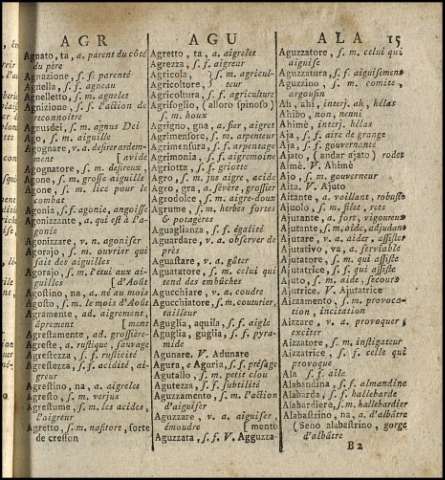 AGR
AGU
ALA 15
Agnato, ta, a. parent du côté
du pére
Agnazione, s. f. parenté
Agnella, s. f. agneau
Agnelletto, s. m. agnelet
Agnizione, s. f. l'action de
reconnoitre
Agnusdei, s. m. agnus Dei
Ago, s. m. aiguille
Agognare, v. a. desirer ardem-
ment [avide
Agognatore, s. m. desireux,
Agone, s. m. grosse aiguille
Agone, s. m. lice pour le
combat
Agonia, s. f. agonie, angoisse
Agonizzante, a. qui est à l'a-
gonie
Agonizzare, v. n. agoniser
Agorajo, s. m. ouvrier qui
fait des aiguilles
Agorajo, s. m. l'étui aux ai-
guilles [d'Août
Agostino, na, a. né au mois
Agosto, s. m. le mois d'Août
Agramente, ad. aigrement,
âprement [ment
Agrestamente, ad. grossiére-
Agreste, a. rustique, sauvage
Agrestezza, s. f. rusticité
Agrestezza, s. f. acidité, ai-
greur
Agrestino, na, a. aigrelet
Agresto, s. m. verjus
Agrestume, s. m. les acides,
l'aigreur
Agretto, s. m. nasitore, sorte
de cresson
Agretto, ta, a. aigrelet
Agrezza, s. f. aigreur
Agricola, } s. m. agricul-
Agricoltore, } teur
Agricoltura, s. f. agriculture
Agrifoglio, (alloro spinoso)
s. m. houx
Agrigno, gna, a. fier, aigret
Agrimensore, s. m. arpenteur
Agrimensura, s. f. arpentage
Agrimonia, s. f. aigremoine
Agriotta, s. f. griotte
Agro, s. m. jus aigre, acide
Agro, gra, a. sévére, grossier
Agrodolce, s. m. aigre-doux
Agrume, s. m. herbes fortes
& potagéres
Aguaglianza, s. f. égalité
Aguardare, v. a. observer de
près
Aguastare, v. a. gâter
Aguatatore, s. m. celui qui
tend des embûches
Agucchiare, v. a. coudre
Agucchiatore, s. m. couturier,
tailleur
Aguglia, aquila, s. f. aigle
Aguglia, guglia, s. f. pyra-
mide
Agunare. V. Adunare
Agura, e Aguria, s. f. présage
Agutallo, s. m. petit clou
Agutezza, s. f. subtilité
Aguzzamento, s. m. l'action
d'aiguiser
Aguzzare, v. a. aiguiser,
émoudre [mento
Aguzzata, s. f. V. Agguzza-
Aguzzatore, s. m. celui qui
aiguise
Aguzzatura, s. f. aiguisement
Aguzzino, s. m. comite,
argousin
Ah, ahi, interj. ah, hélas
Ahibo, non, nenni
Ahimè, interj. ah, hélas
Aja, s. f. aire de grange
Aja, s. f. gouvernante
Ajato, (andar ajato) roder
Aimè. V. Ahimè
Ajo, s. m. gouverneur
Aita. V. Ajuto
Aitante, a. vaillant, robuste
Ajuolo, s. m. filet, rets
Ajutante, a. fort, vigoureux
Ajutante, s. m. aide, adjudant
Ajutare, v. a. aider, assister
Ajutativo, va, a. serviable
Ajutatore, s. m. qui assiste
Ajutatrice, s. f. qui assiste
Ajuto, s. m. aide, secours
Ajutrice. V. Ajutatrice
Aizzamento, s. m. provoca-
tion, incitation
Aizzare, v. a. provoquer,
exciter
Aizzatore, s. m. instigateur
Aizzatrice, s. f. celle qui
provoque
Ala s. f. aile
Alabandina, s. f. almandine
Alabarda, s. f. hallebarde
Alabardiere, s. m. hallebardier
Alabastrino, na, a. d'albâtre
(Seno alabastrino, gorge
d'albâtre)
B 2